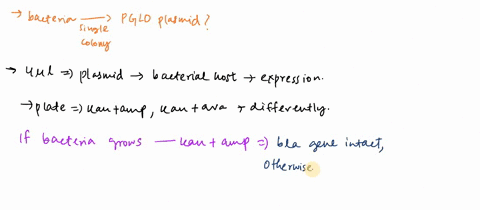 → bacteria → PGLO plasmid?
single
colony
→ 4μl => plasmid → bacterial host → expression.
→ plate => kan+amp, kan+ara → differently.
If bacteria grows — kan + amp => bla gene intact,
otherwise